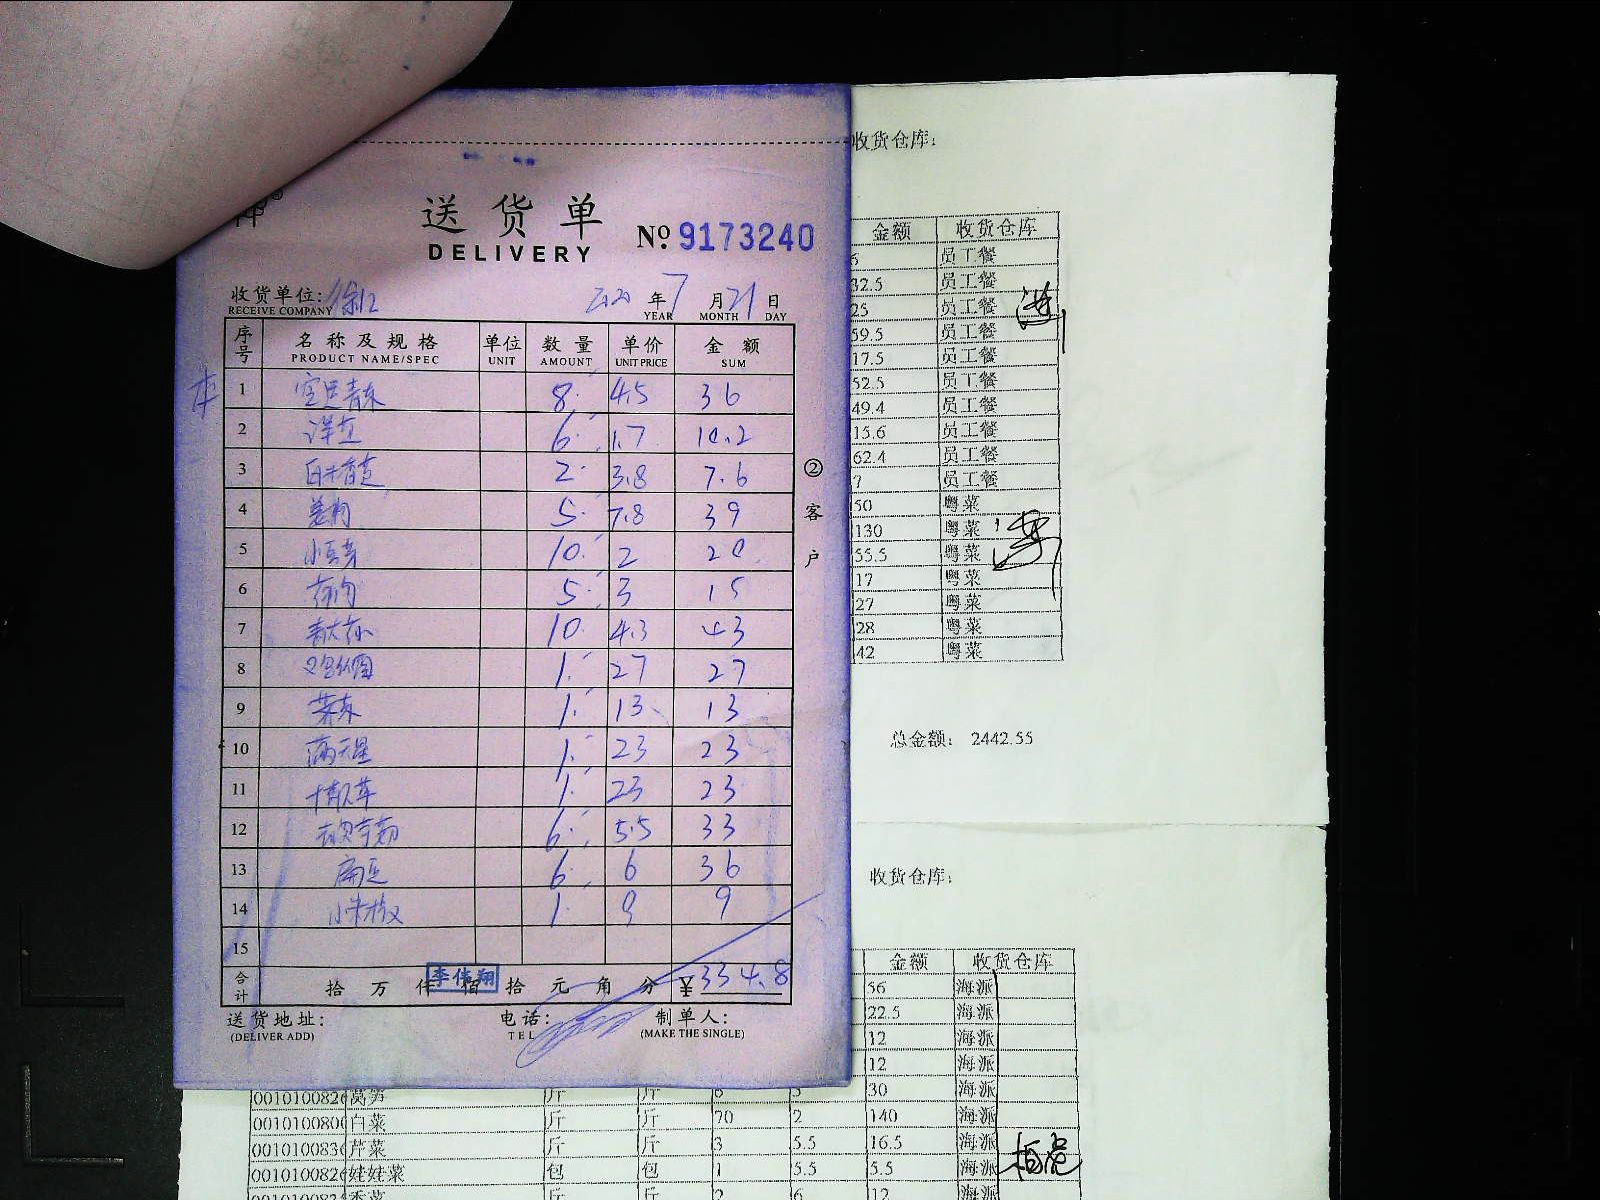 送货单
DELIVERY
№ 9173240
收货单位: 徐汇
RECEIVE COMPANY
2020 年 7 月 21 日
YEAR MONTH DAY
序号 名称及规格 单位 数量 单价 金额
PRODUCT NAME/SPEC UNIT AMOUNT UNIT PRICE SUM
本
1 8 4.5 36
2 6 1.7 10.2
3 2 3.8 7.6
4 5 7.8 39
5 小豆芽 10 2 20
6 5 3 15
7 10 4.3 43
8 1 27 27
9 1 13 13
10 满天星 1 23 23
11 1 23 23
12 6 5.5 33
13 扁豆 6 6 36
14 小米椒 1 9 9
15
合计 拾 万 仟 佰 拾 元 角 分 ¥ 334.8
李伟翔
送货地址: 电话: 制单人:
(DELIVER ADD) TEL (MAKE THE SINGLE)
② 客户
收货仓库:
金额 收货仓库
5 员工餐
32.5 员工餐
25 员工餐
59.5 员工餐
17.5 员工餐
52.5 员工餐
49.4 员工餐
15.6 员工餐
62.4 员工餐
7 员工餐
50 粤菜
130 粤菜
55.5 粤菜
17 粤菜
27 粤菜
28 粤菜
42 粤菜
总金额: 2442.55
收货仓库:
金额 收货仓库
56 海派
22.5 海派
12 海派
12 海派
0010100826 莴笋 斤 斤 6 5 30 海派
001010080 白菜 斤 斤 70 2 140 海派
001010083 芹菜 斤 斤 3 5.5 16.5 海派
001010082 娃娃菜 包 包 1 5.5 5.5 海派
001010082 香菜 斤 斤 2 6 12 海派